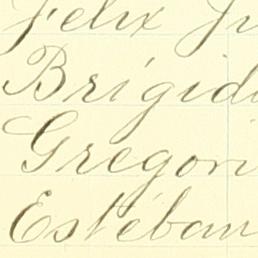 Felix Ju
Brigid
Gregori
Estéban